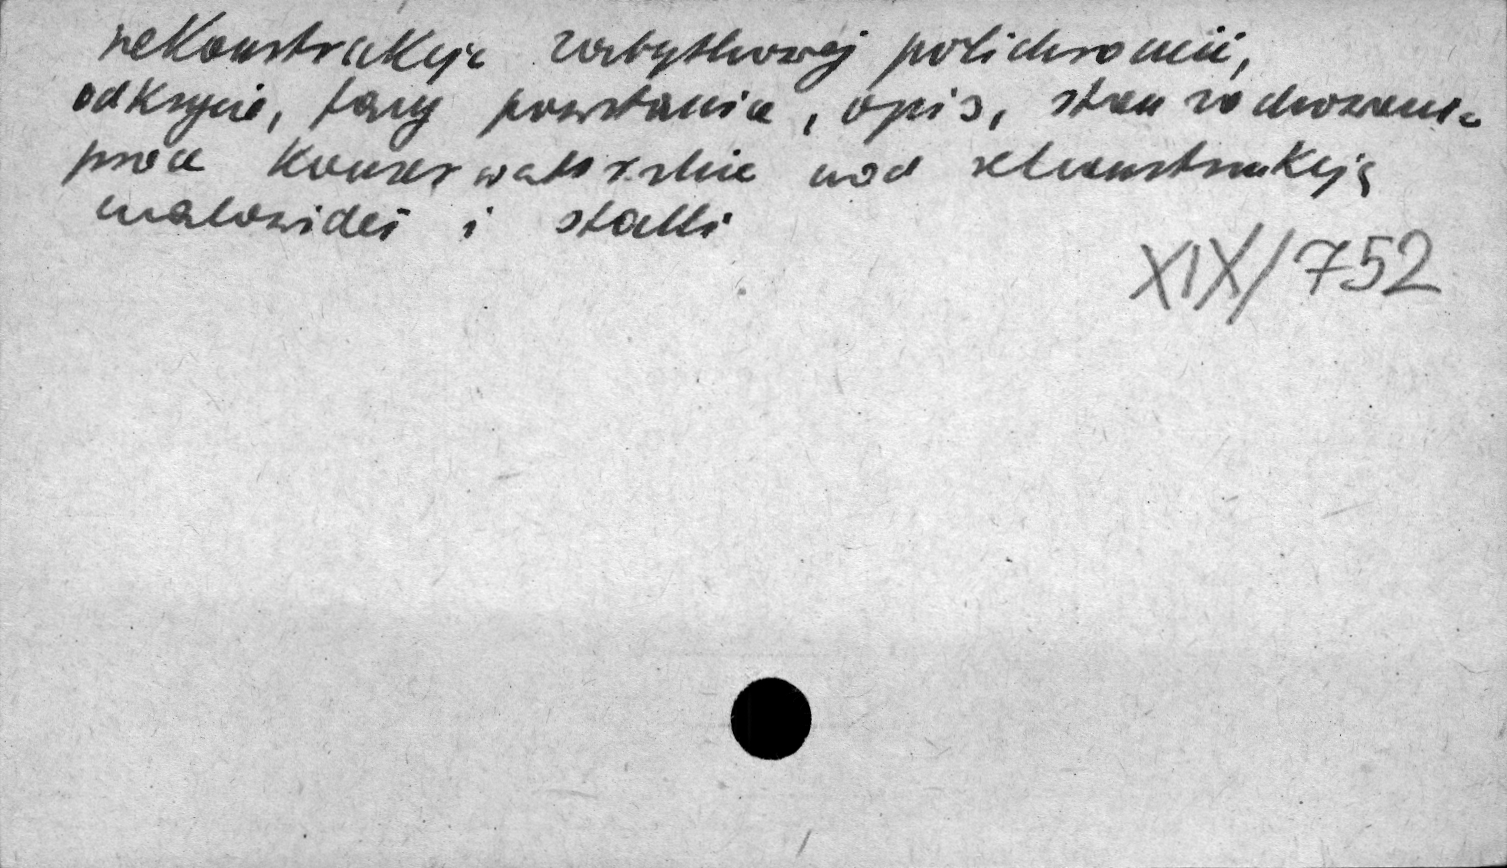 rekonstrukcja zabytkowej polichromii,
odkrycie, fazy powstania, opis, stan zachowania
prace konserwatorskie nad rekonstrukcją
malowideł i stalli
XIX/752